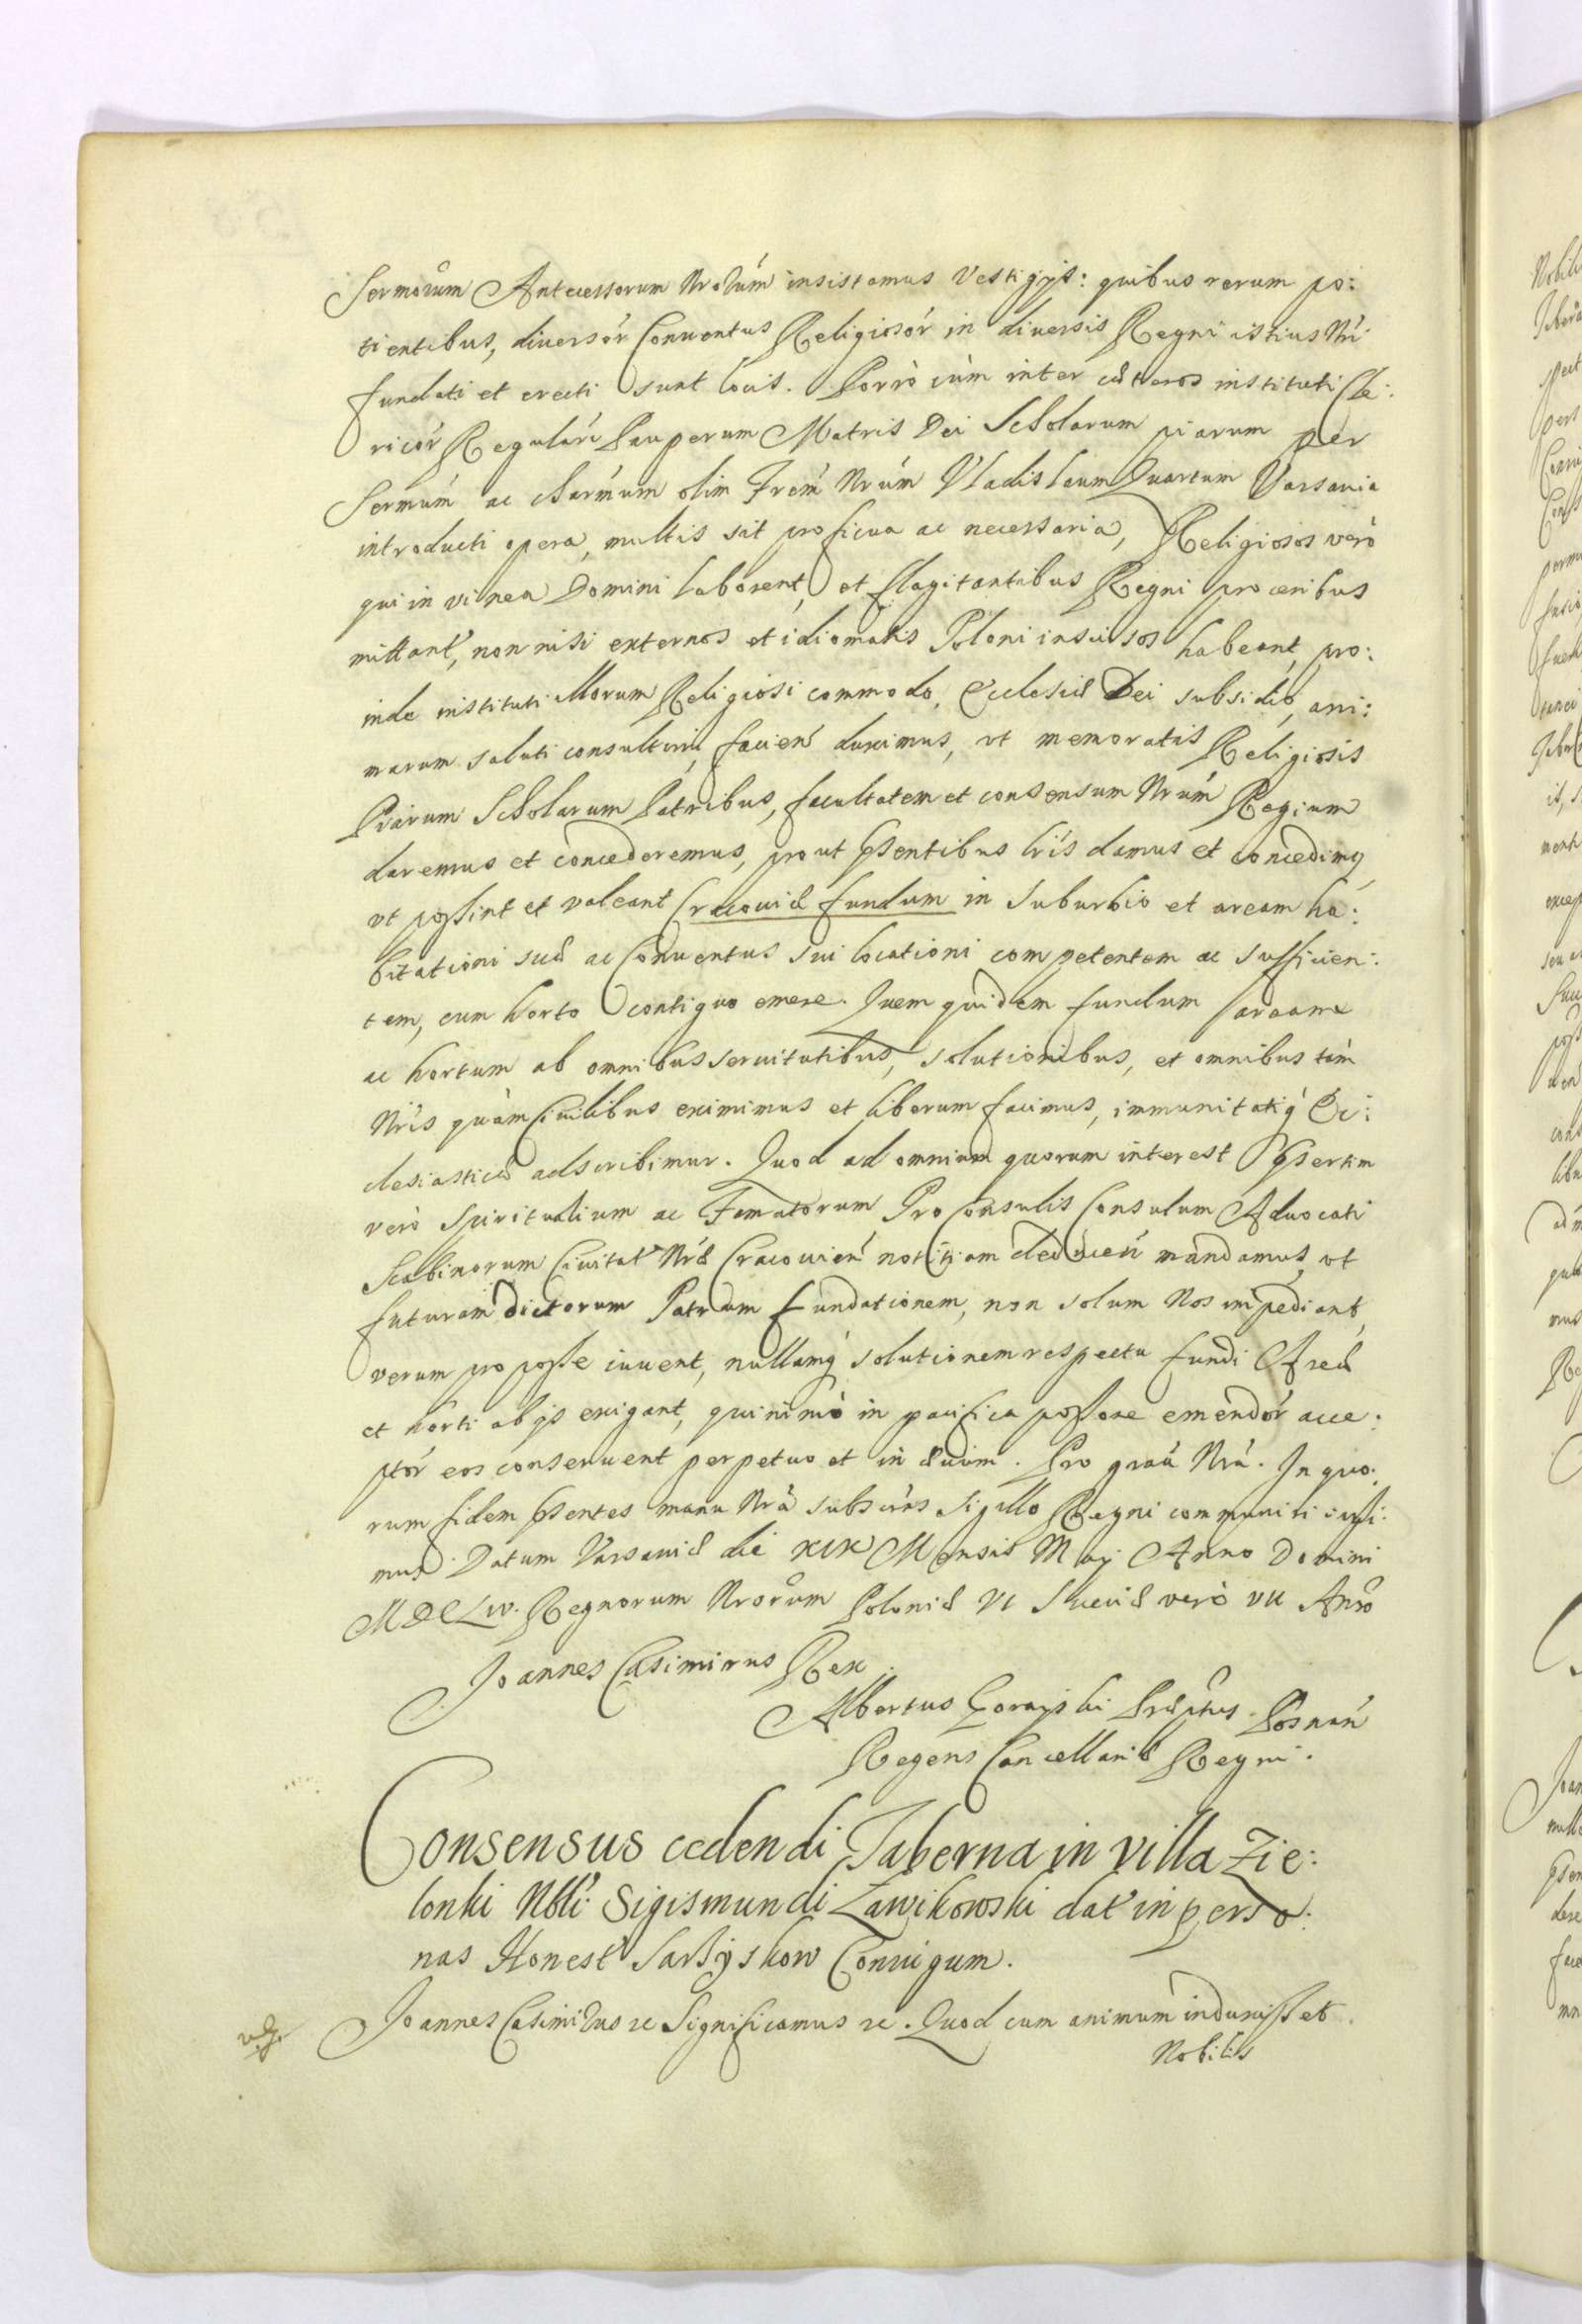 Sermoŕum Antecessorum Nrorúm insistamus Vestigijs: quibus rerum po:
tientibus, diuersór Conuentus Religiosór in diuersis Regni istius Nri
fundati et erecti sunt locis. Porrò cùm inter cæteros instituti Cle:
ricór Regulariú Pauperum Matris Dei Scholarum piarum per
Sermúm ac charmúm olim Frem Nrúm Vladislaum Quartum Varsauia
introducti opera, multis sit proficua ac necessaria, Religiosos verò
qui in vinea Domini laborent, et flagitantibus Regni proceribus
mittant, non nisi externos et idiomatis Poloni inscios habeant, pro:
inde instituti illorum Religiosi commodo, Ecclesiæ Dei subsidio, ani:
marum saluti consultum facien duximus, vt memoratis Religiosis
Piarum Scholarum Patribus, facultatem et consensum Nrúm Regium
daremus et concederemus, prout psentibus lris damus et concedimq
vt possint et valeant Cracouiæ fundum in Suburbio et aream ha:
bitationi suæ ac Conuentus sui locationi competentem ac sufficien:
tem, cum horto contiguo emere. Quem quidem fundum aream
ac hortum ab omnibus seruitutibus, solutionibus, et omnibus tàm
Nris quàm Ciuilibus eximimus et liberum facimus, immunitatiq Ec:
clesiasticæ adscribimur. Quod ad omnium quorum interest psertim
verò Spiritualium ac Senatorum Proconsulis Consulum Aduocati
Scabinorum Ciuitat Nræ Cracouien notitiam deducen mandamus, vt
futuram dictorum Patrum fundationem, non solum Nos impediant,
verum pro posse iuuent, nullamq solutionem respectu fundi Areæ
et horti ab ijs exigant, quinimò in pacifica possone emendór acce:
ptór eos conseruent perpetuo et in æuúm. Pro graâ Nrâ. In quo:
rum fidem psentes manu Nrâ subscras Sigillo Regni communiri iussi:
mus. Datum Varsauiæ die XIX Mensis Maij Anno Domini
MDCLIV. Regnorum Nrorum Poloniæ VI Sueciæ verò VII Anno
Joannes Casimirus Rex
Albertus Gorayski Præptus Posnan
Regens Cancellariæ Regni.
Consensus cedendi Taberna in villa Zie:
lonki Nbli Sigismundi Zawikowski dat in perso:
nas Honest Sarkyskow Coniugum.
Joannes Casimirus rc Significamus rc. Quod cum animum induxisset
Nobilis